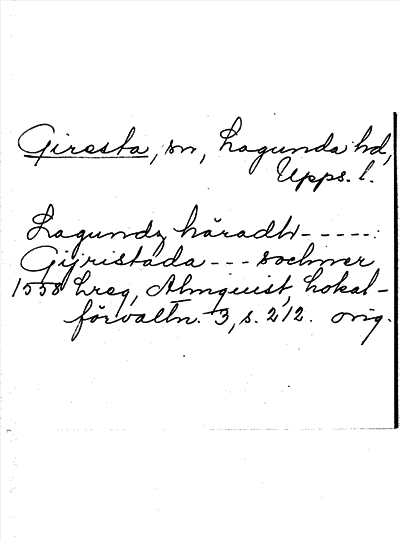 Giresta, sn, Lagunda hd,
Upps. l.
Lagundz häradh - - - - - :
Gijristada - - - sochner
1558 Lreg, Almquist, Lokal-
förvaltn. 3, s. 212. orig.